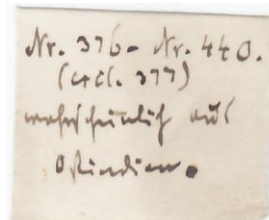 Nr. 376 - Nr. 440.
(excl. 377)
wahrscheinlich aus
Ostindien.